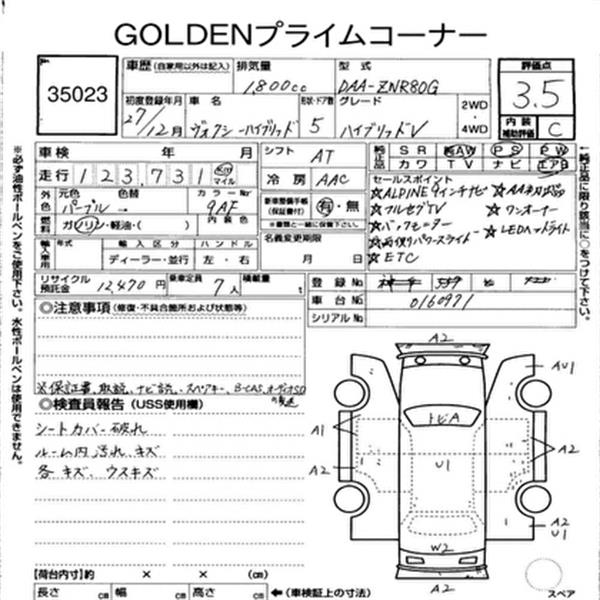 GOLDENプライムコーナー
35023
車歴 (自家用以外は記入)
排気量
型式
評価点
1,800cc
DAA-ZNR80G
3.5
初度登録年月
車名
形状・ドア数
グレード
2WD
・
4WD
27/12月
ヴォクシーハイブリッド
5
ハイブリッドV
内装
補助評価
C
車検 年 月
シフト
AT
純正装備品
SR AW PS PW
カワ TV ナビ エアB
走行 123,731 km マイル
冷房
AAC
セールスポイント
☆ALPINE9インチナビ
☆フルセグTV
☆ワンオーナー
☆バックモニター
☆LEDヘッドライト
☆両側パワースライド
☆ETC
外色
元色
色替
カラーNo
パープル→
9AF
内装色
燃料
ガソリン・軽油・( )
新車整備手帳
(保証書付)
有・無
※書類と一緒に保管下さい
輸入車用
年式
輸入区分
ハンドル
ディーラー・並行
左・右
名義変更期限
月 日
リサイクル
預託金
12,470円
乗車定員
7人
積載量
t
登録No
車台No
0160971
シリアルNo
◎注意事項 (修復・不具合箇所および状態等)
※保証書、取説、ナビ説、スペアキー、B-CAS、オーディオSD
後送
◎検査員報告 (USS使用欄)
シートカバー破れ
ルーム内汚れ、キズ
各キズ、ウスキズ
A2
AU1
トビA
A1
A2
U1
A2
A2
U1
W2
A2
スペア
【荷台内寸】約 × × (cm)
長さ cm 幅 cm 高さ cm ←(車検証上の寸法)
※必ず油性ボールペンをご使用下さい。水性ボールペンは使用できません。
↑純正品に限り該当に○をつけて下さい。